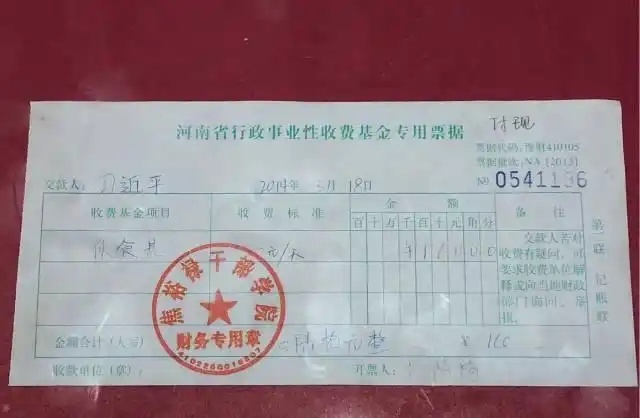 河南省行政事业性收费基金专用票据
付现
票据代码:豫财410105
票据批次:NA [2013]
№ 0541196
交款人: 习近平 2014年 3月 18日
收费基金项目 收费标准 金额 备注
百 十 万 千 百 十 元 角 分
伙食费 元/天 ¥ 1 6 0 0 0
交款人若对
收费有疑问,可
要求收费单位解
释或向当地财政
部门询问、举
报。
第二联 记账联
焦裕禄干部学院
财务专用章
金额合计(大写) 陆拾元整 ¥ 160
收款单位(章): 开票人: